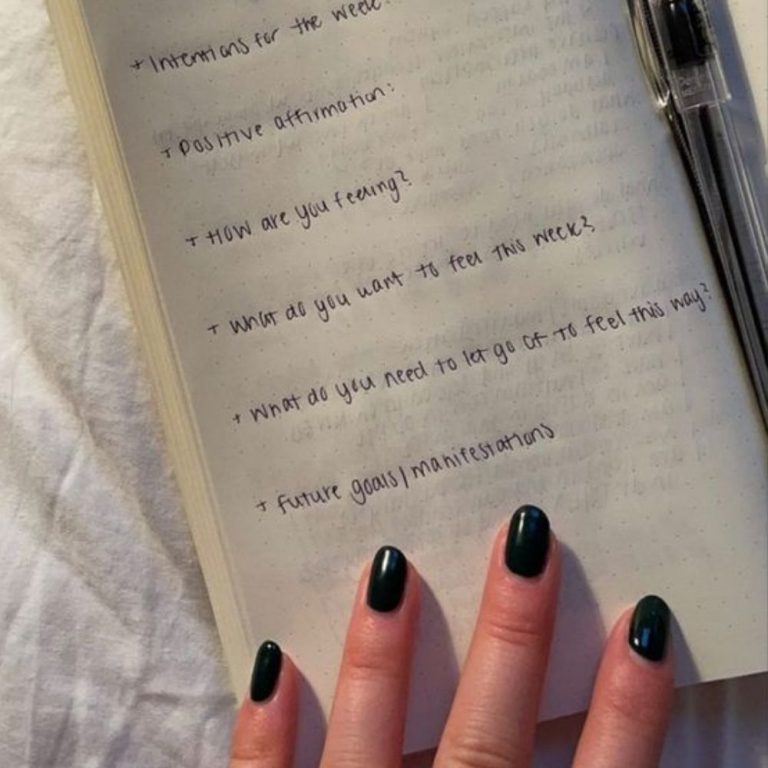 + Intentions for the week:
+ Positive affirmation:
+ How are you feeling?
+ What do you want to feel this week?
+ What do you need to let go of to feel this way?
+ Future goals/manifestations